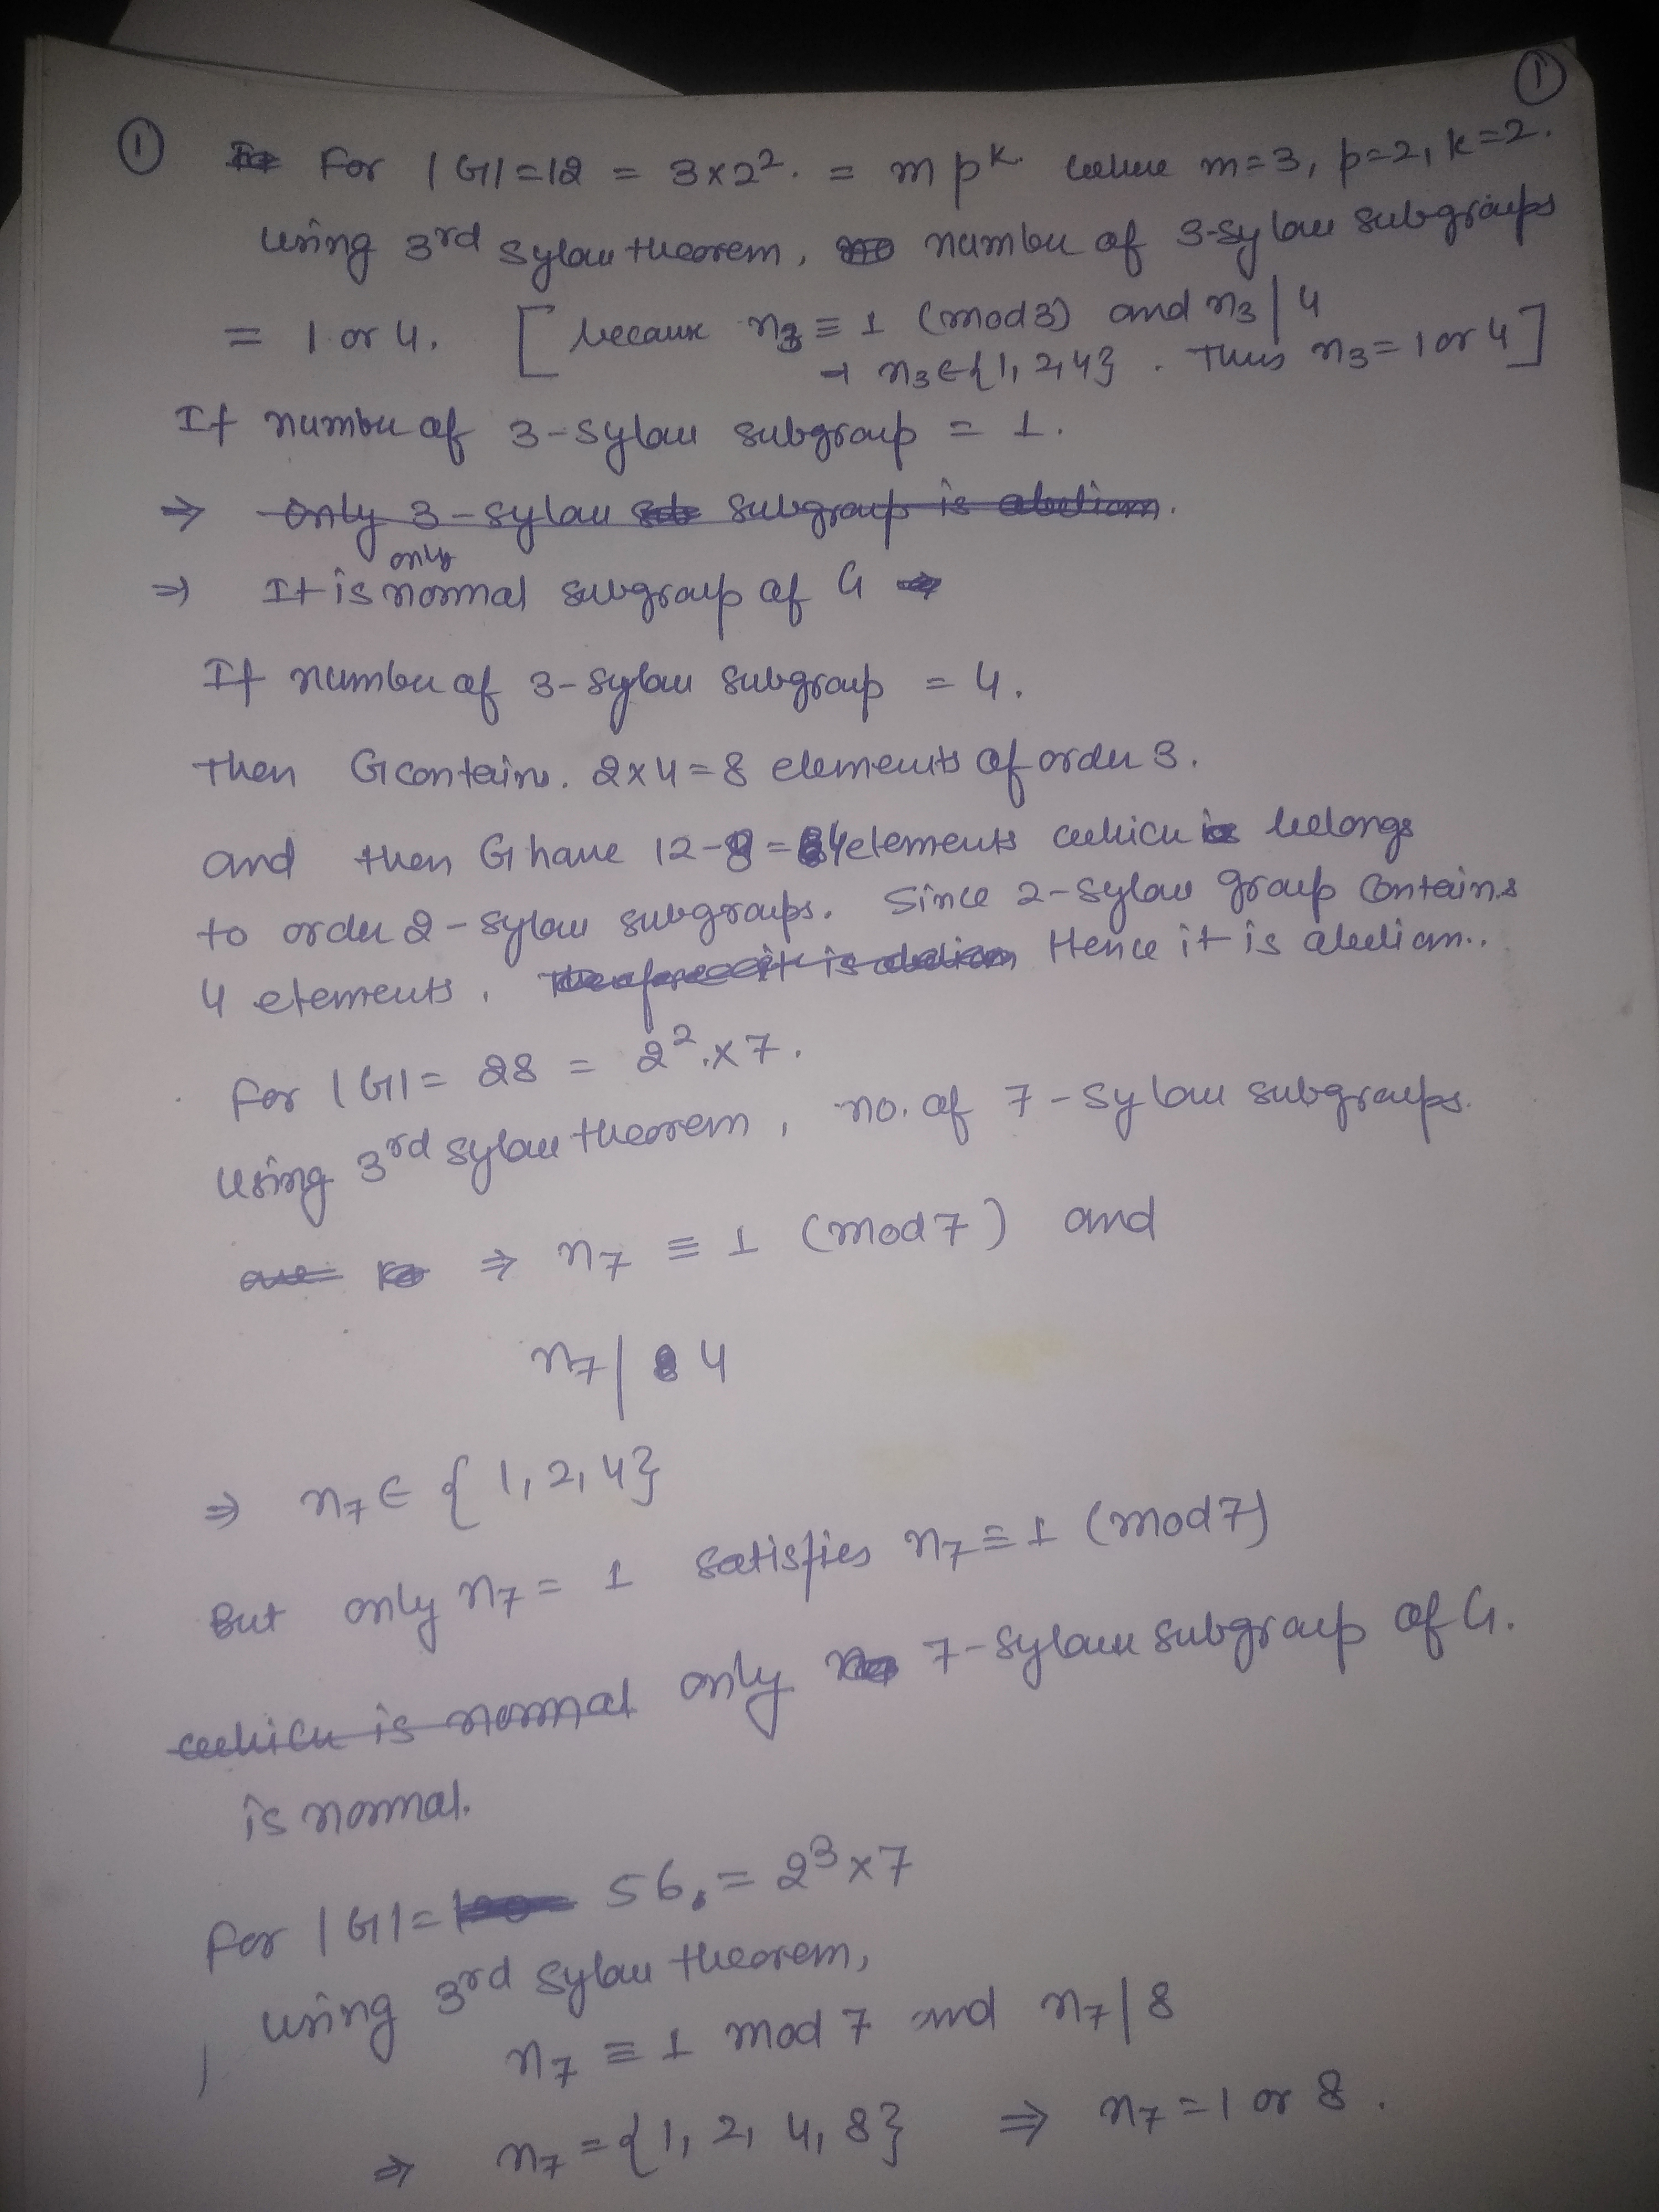 ①
① For |G|=12 = 3×2². = m pᵏ where m=3, p=2, k=2.
Using 3rd Sylow theorem, number of 3-sylow subgroups
= 1 or 4. [because n₃ ≡ 1 (mod 3) and n₃ | 4
⇒ n₃ ∈ {1, 2, 4}. Thus n₃ = 1 or 4]
If number of 3-sylow subgroup = 1.
⇒ only 3-sylow subgroup is abelian.
only
⇒ It is normal subgroup of G
If number of 3-sylow subgroup = 4.
Then G contains. 2×4=8 elements of order 3.
and then G have 12-8=4 elements which belongs
to order 2-sylow subgroups. Since 2-sylow group contains
4 elements. Therefore it is abelian Hence it is abelian..
For |G| = 28 = 2².×7.
Using 3rd sylow theorem, no. of 7-sylow subgroups.
are ⇒ n₇ ≡ 1 (mod 7) and
n₇ | 4
⇒ n₇ ∈ {1, 2, 4}
But only n₇ = 1 satisfies n₇ ≡ 1 (mod 7)
which is normal only 7-sylow subgroup of G.
is normal.
For |G| = 56. = 2³×7
using 3rd sylow theorem,
n₇ ≡ 1 mod 7 and n₇ | 8
⇒ n₇ = {1, 2, 4, 8} ⇒ n₇ = 1 or 8.